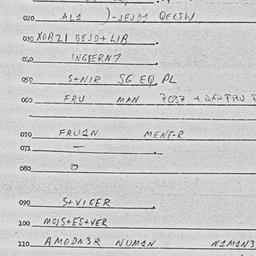 020 AL1 )-JEJD1 QELSW
030 XORZI BEJD+LIB
040 INGTERN7
050 S+NIR SG EQ PL
060 FRU MAN
070 FRU1N MENE-R
071 –
080
090 S+VIGER
100 MOJS+ES+VER
110 AMODN3R NUM1N N1M1N3